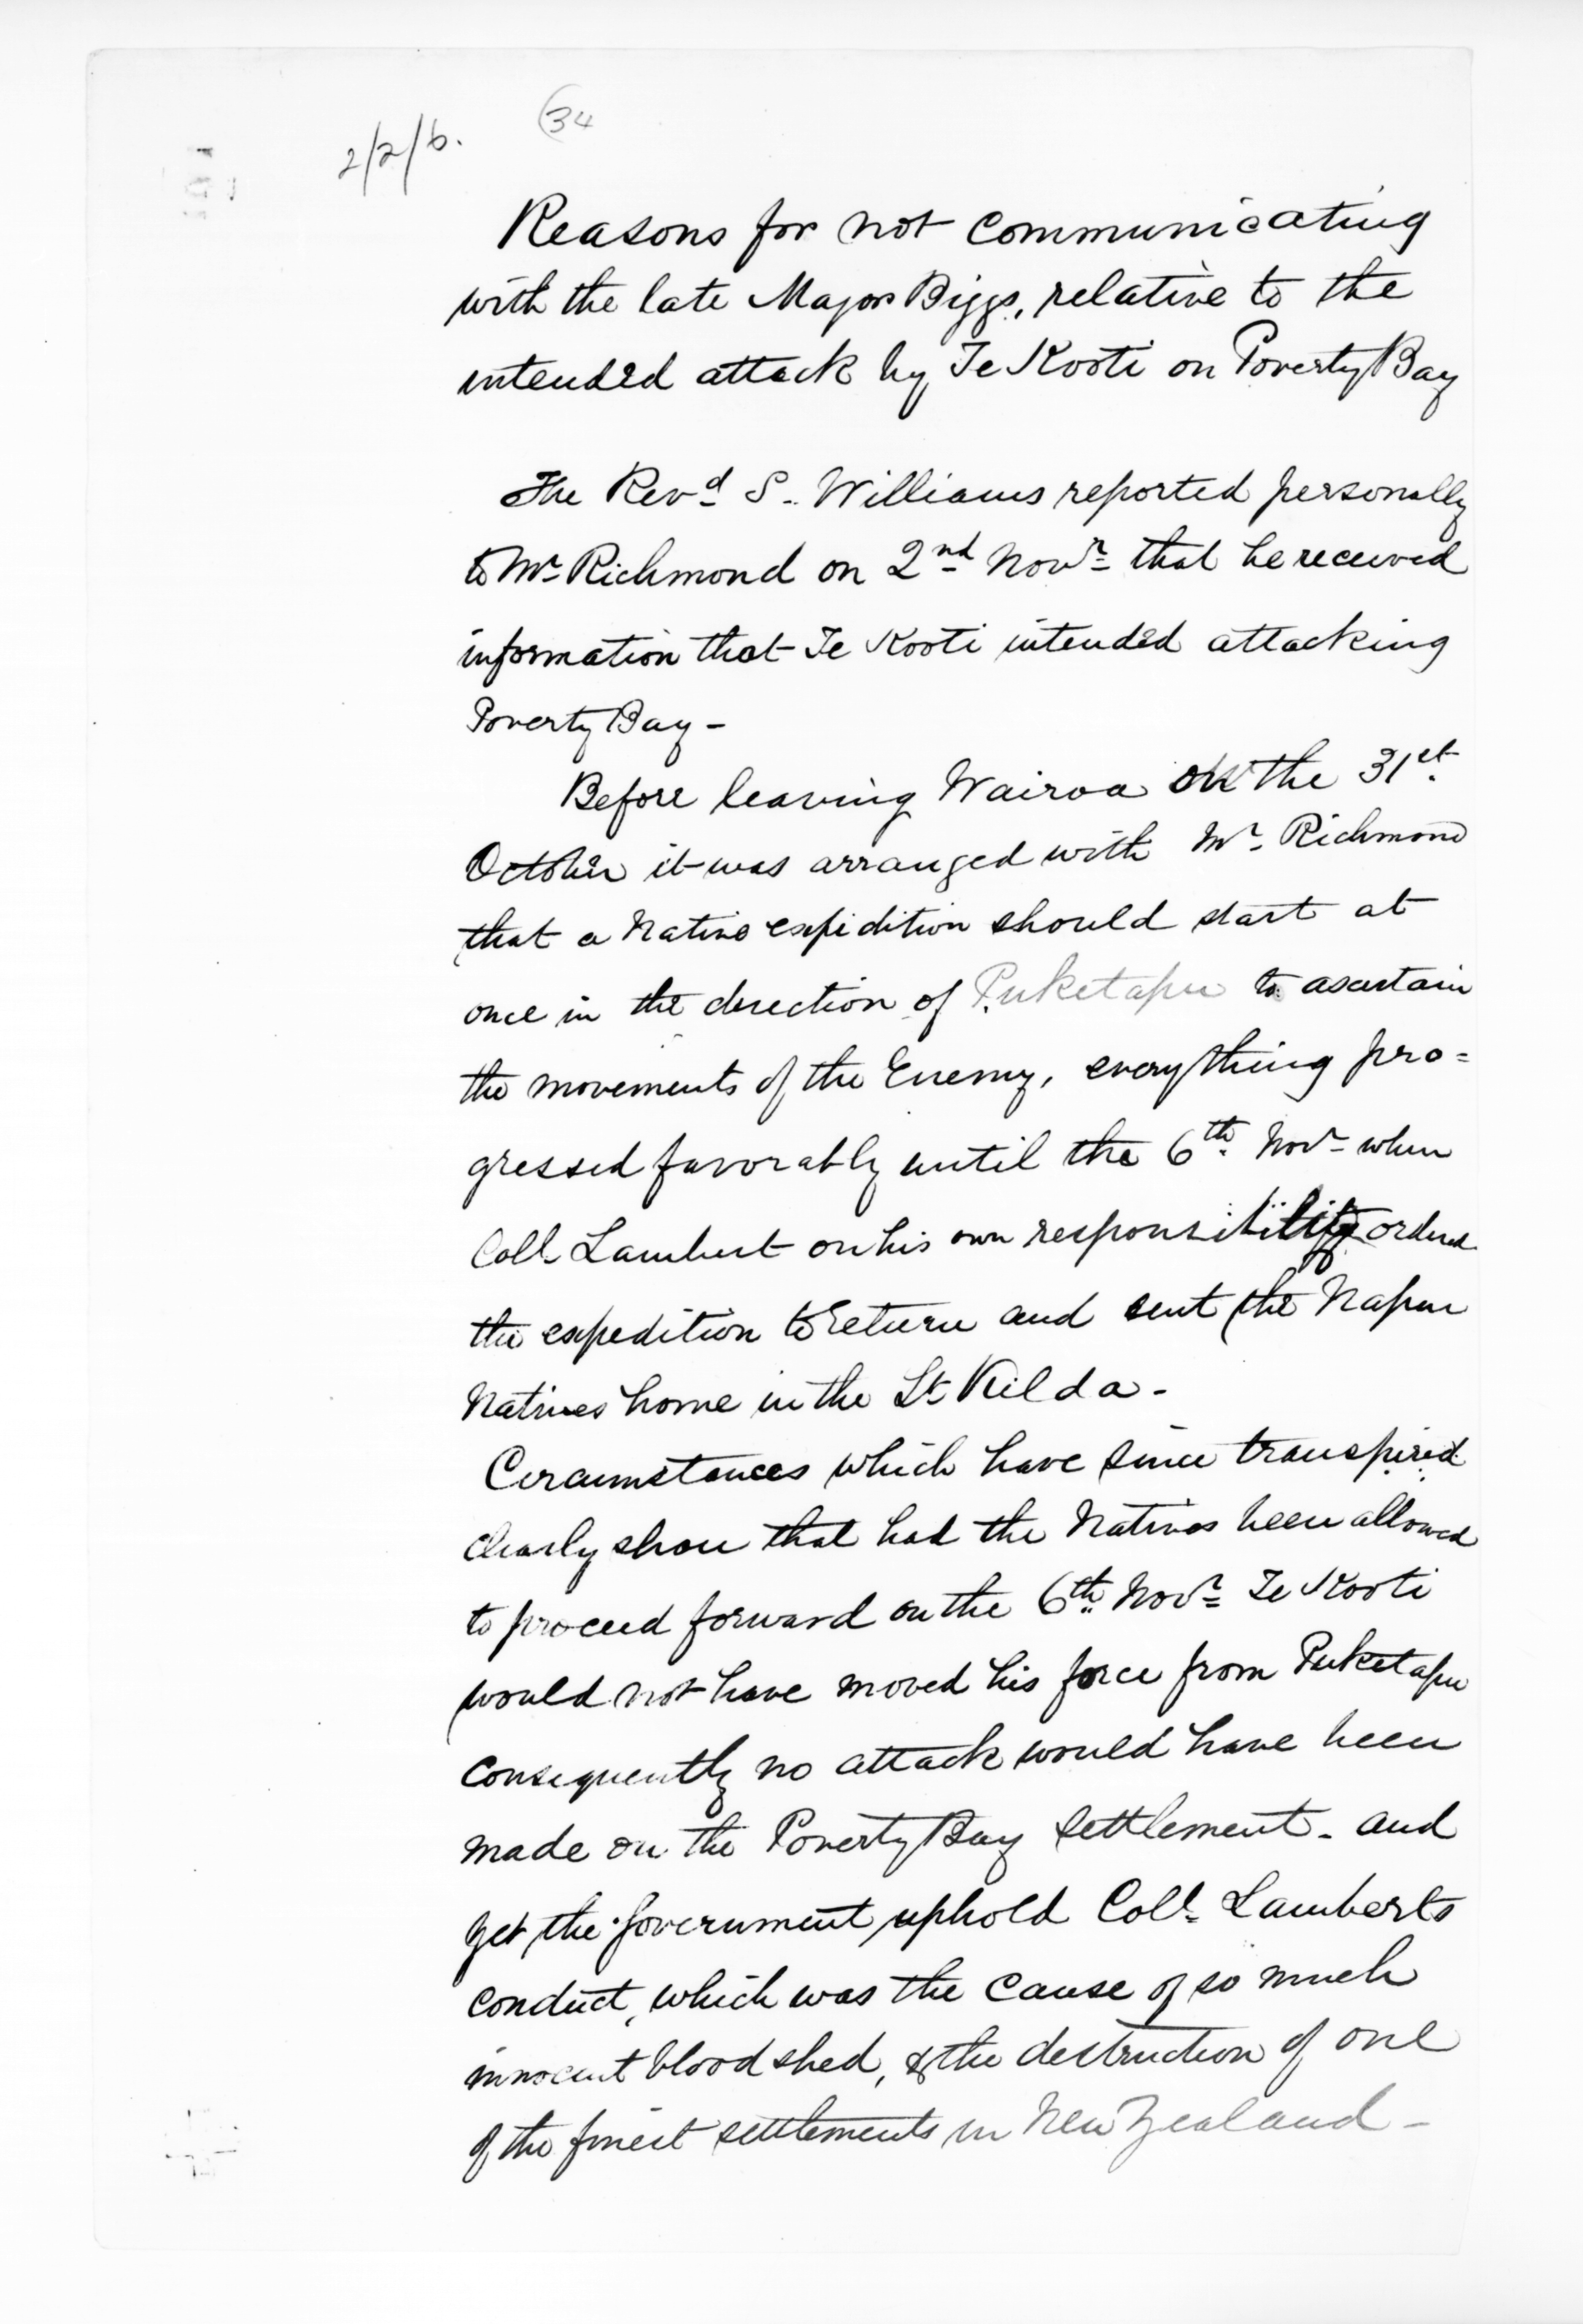 34
2/2/6.
Reasons for not communicating
with the late Major Biggs, relative to the
intended attack by Te Kooti on Poverty Bay
The Revd S. Williams reported personally
to Mr Richmond on 2nd Novr that he received
information that Te Kooti intended attacking
Poverty Bay -
Before leaving Wairoa on the 31st
October it was arranged with Mr Richmond
that a Native expidition should start at
once in the direction of Puketapu to ascertain
the movements of the Enemy, everything pro=
gressed favorably until the 6th Novr when
Coll Lambert on his own responsibility ordered
the expedition to return and sent the Napier
Natives home in the St Kilda -
Circumstances which have since transpired
clearly show that had the Natives been allowed
to proceed forward on the 6th Novr Te Kooti
would not have moved his force from Puketapu
consequently no attack would have been
made on the Poverty Bay settlement - and
yet the Government uphold Coll Lamberts
conduct, which was the cause of so much
innocent blood shed, & the destruction of one
of the finest settlements in New Zealand -